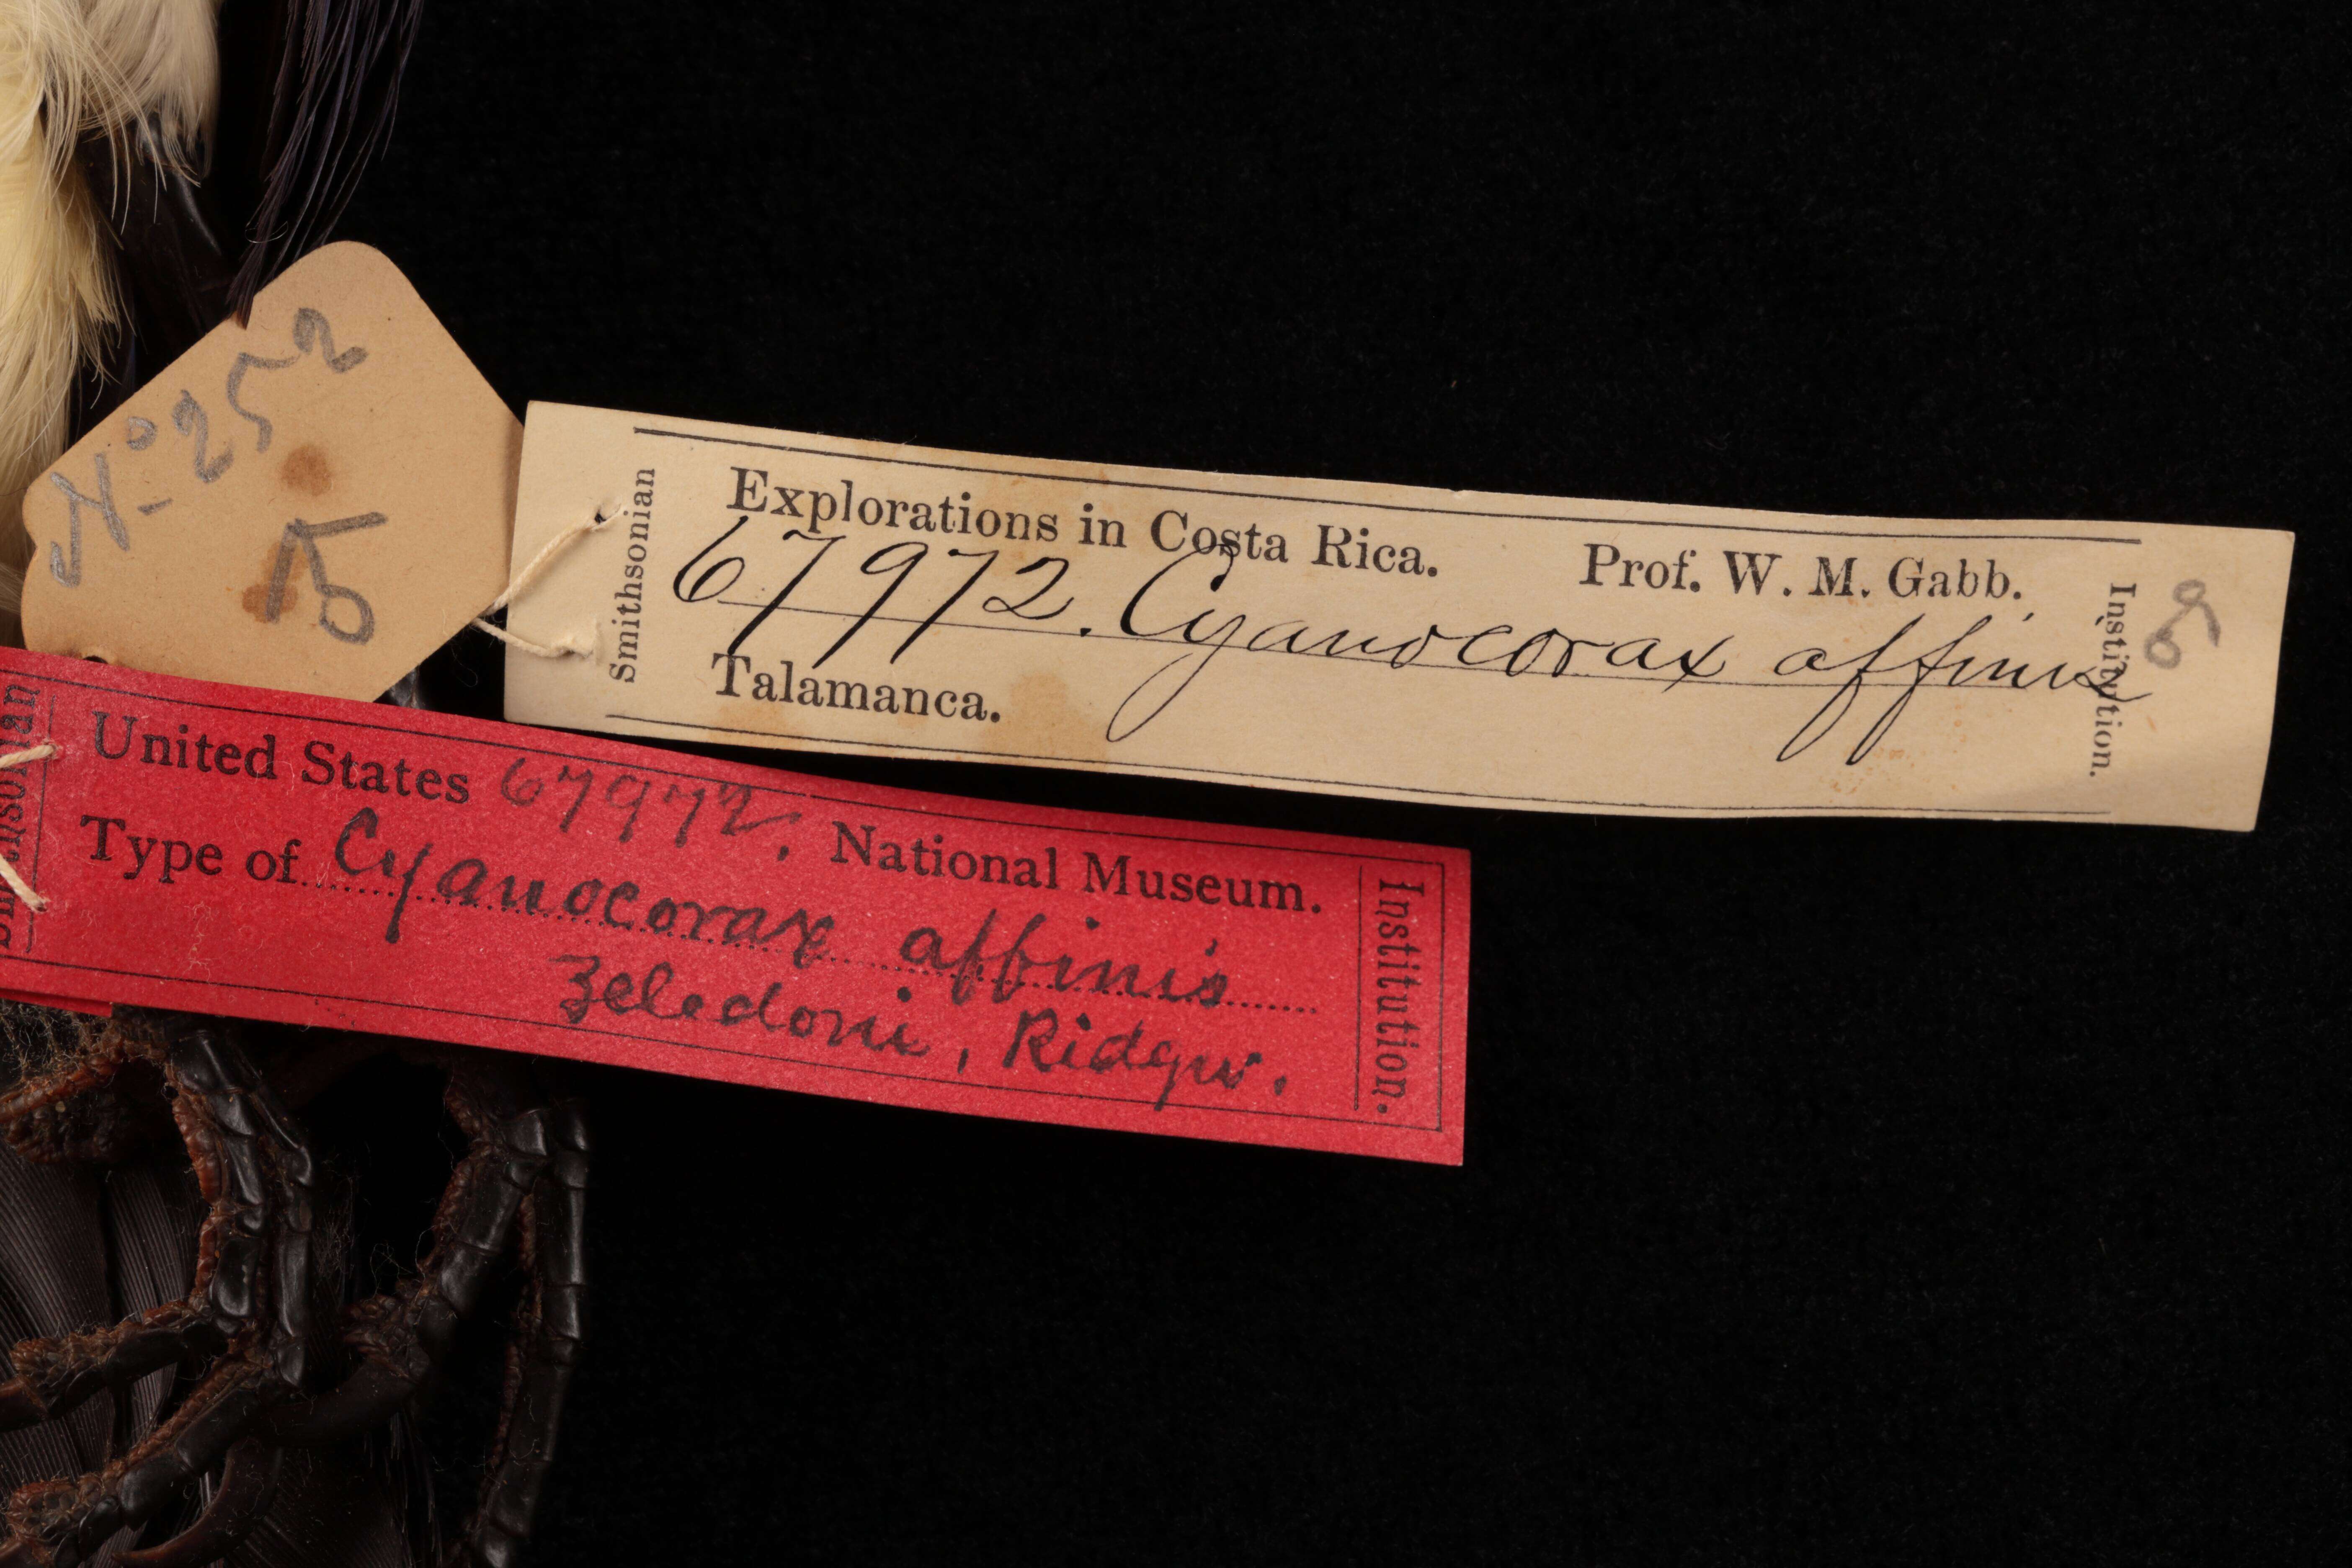 No 252
♂
Smithsonian
Explorations in Costa Rica. Prof. W. M. Gabb.
67972. Cyanocorax affinis
Talamanca.
Institution.
Smithsonian
United States 67972. National Museum.
Type of Cyanocorax affinis
Zeledoni, Ridgw.
Institution.